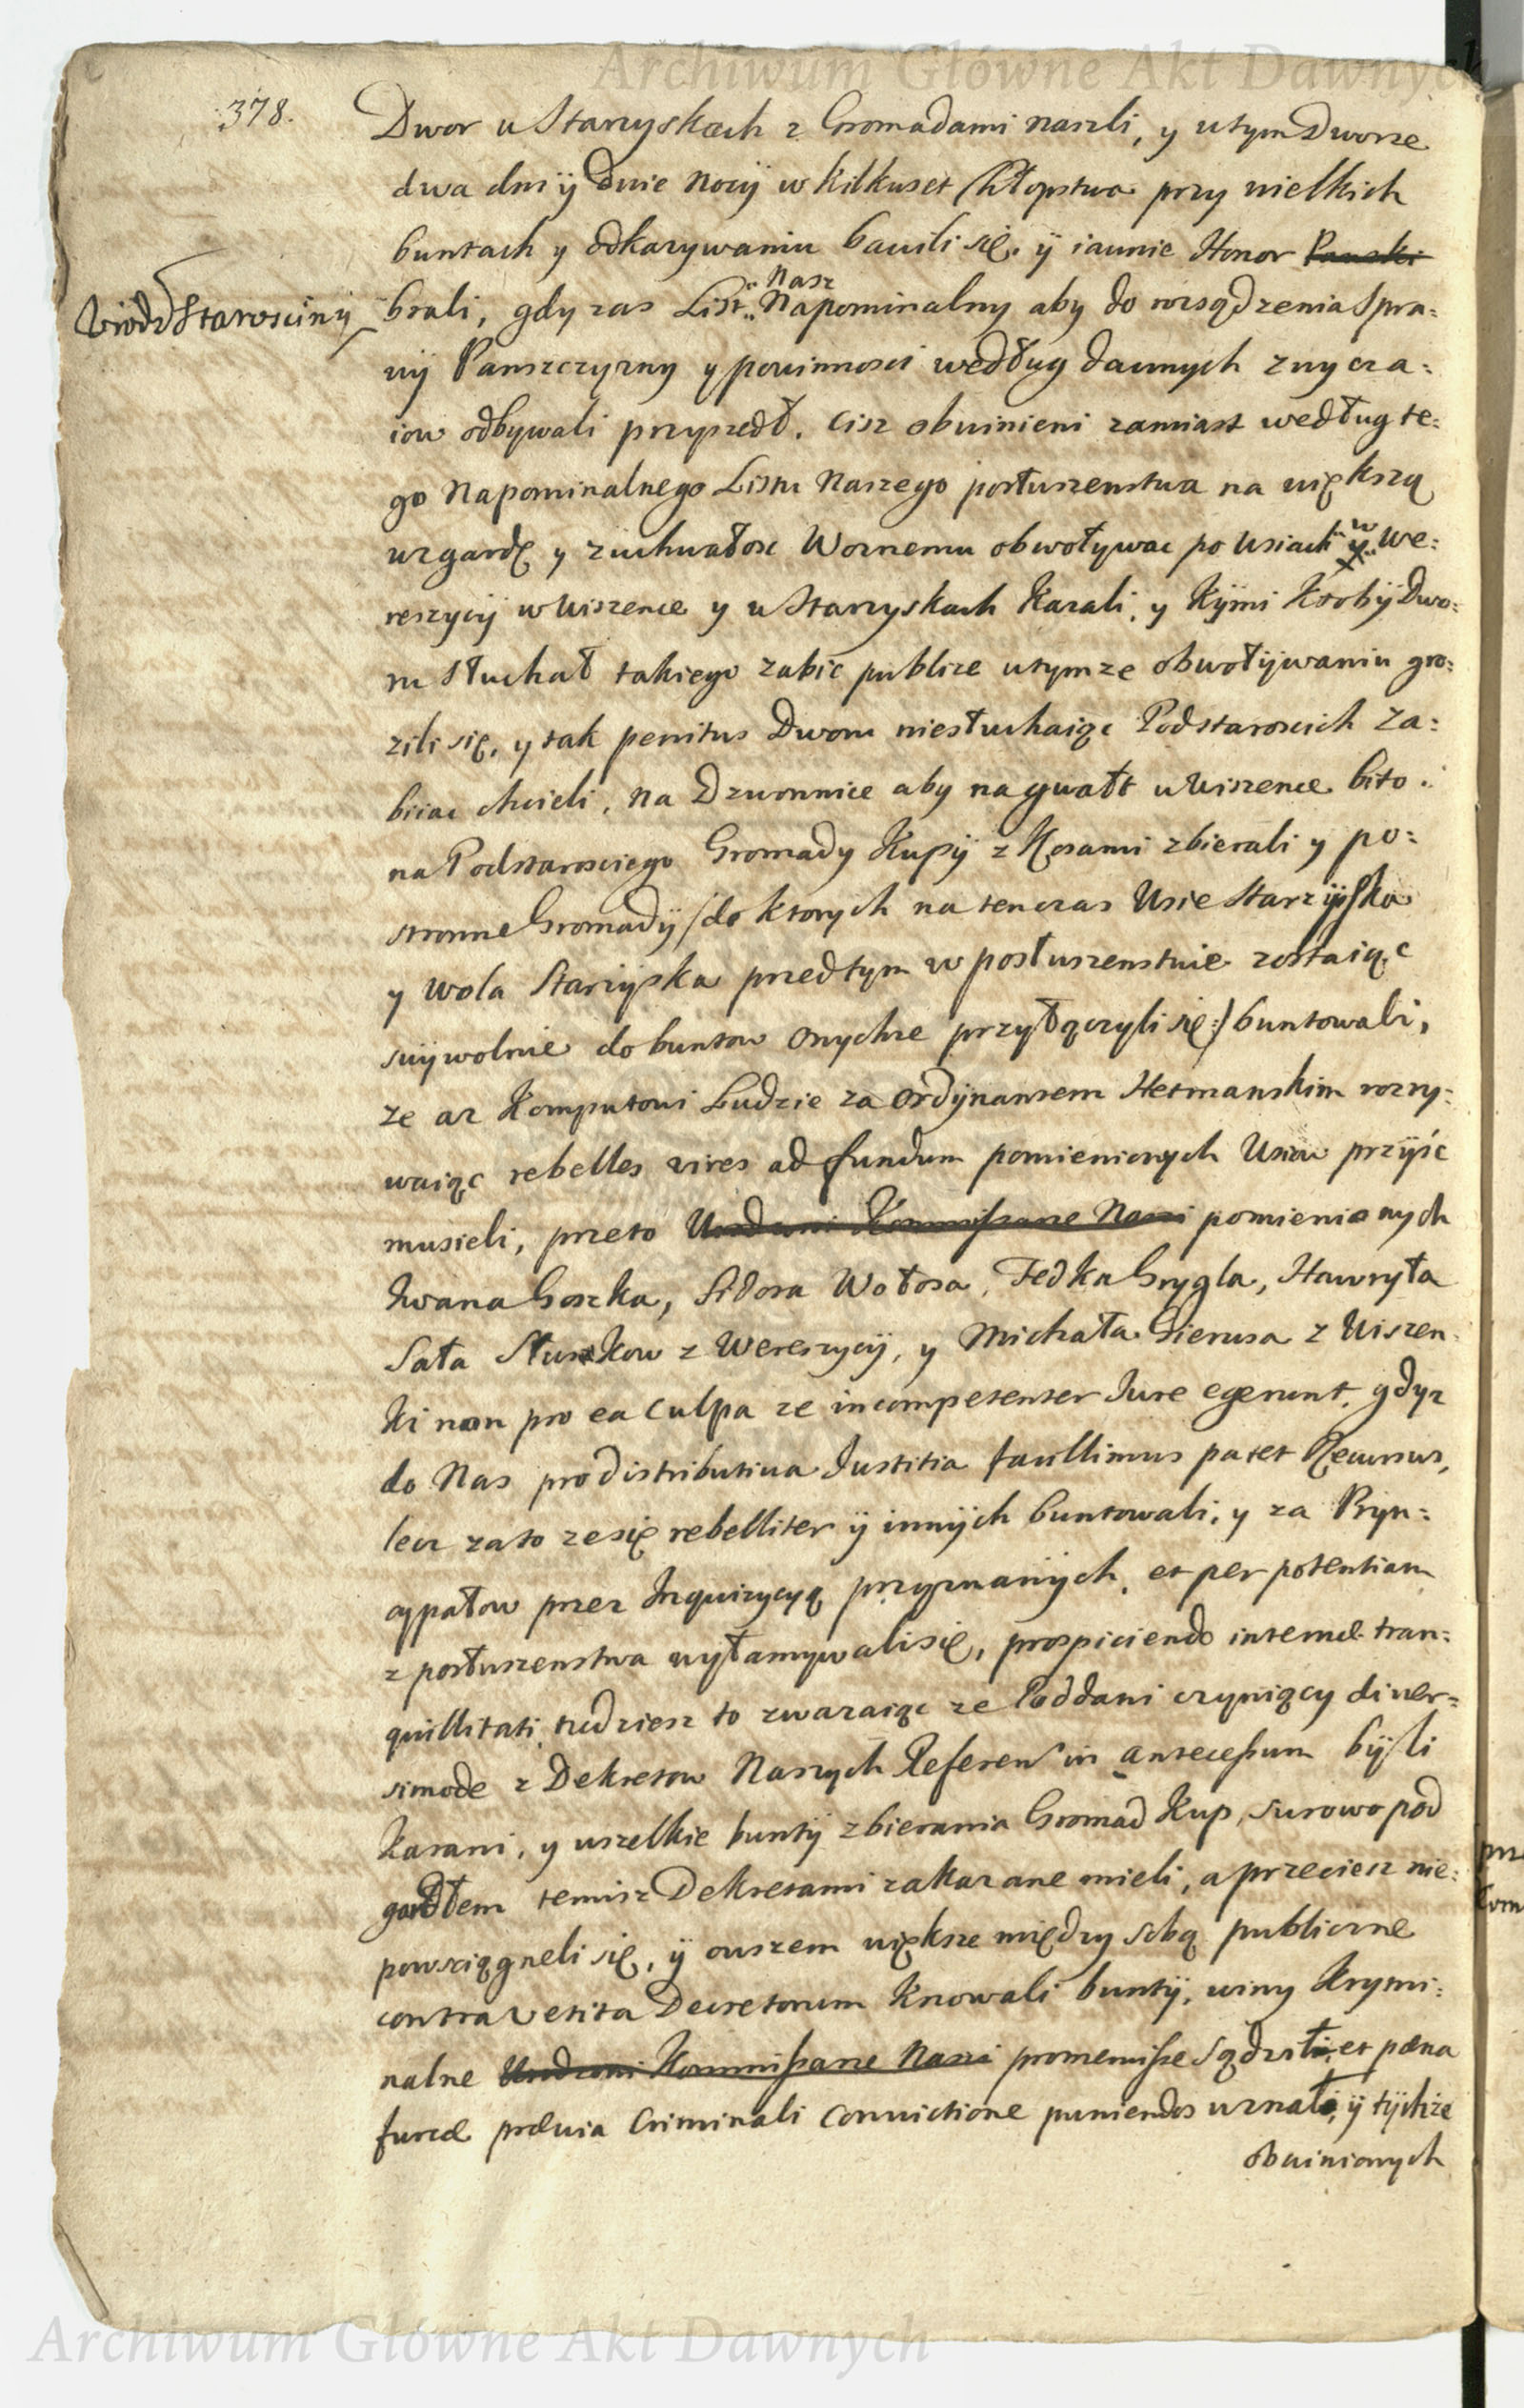 Archiwum Główne Akt Dawnych
378.
Dwor w Starzyskach z Gromadami naszli, y w tym Dworze
dwa dni ÿ dwie nocÿ w kilkuset Chłopstwa przy wielkich
buntach y odkazywaniu bawili się. ÿ iawnie Honor Panski
Wiodł Starosciny
Nasz
brali, gdy zas List Napominalny aby do rozsądzenia Spra=
wÿ Panszczyzny y powinnosci według dawnych zwycza=
iow odbywali przyszedł. cisz obwinieni zamiast według te=
go Napominalnego Listu Naszego posłuszenstwa na większą
wzgardę y zuchwałosc Woznemu obwoływac po wsiach w y We=
reszycÿ w Wiszence y w Starzyskach kazali, y kÿmi ktobÿ Dwo=
ru słuchał takiego zabic publice w tymze obwołÿwaniu gro=
zili się, y tak penitus Dworu niesłuchaiąc Podstaroscich za=
biiac chcieli, na Dzwonnice aby na gwałt w Wiszence bito.
na Podstarosciego Gromady Kupÿ z Kosami zbierali y po=
stronne Gromadÿ /do ktorych na tenczas Wsie Starzÿska
y Wola Starzÿska przedtym w posłuszenstwie zostaiąc
swÿwolnie do buntow onychze przyłączyli się:/ buntowali,
ze az Komputowi Ludzie za ordÿnansem Hetmanskim rozry=
waiąc rebelles vires ad fundum pomienionych Wsiow przÿić
musieli, przeto Urodzoni Kommissarze Nasi pomienionych
Iwana Goszka, Sidora Wołosa, Fedka Grygla, Hawryła
Sała Słuszkow z Wereszycÿ, y Michała Gierusa z Wiszen=
ki non pro ea culpa ze incompetenter Iure egerunt, gdyz
do Nas pro distributiva Iustitia facillimus patet Recursus,
lecz za to ze się rebelliter ÿ innÿch buntowali, y za Prÿn=
cypałow przez Inquizycyą przyznanÿch, et per potentiam
z posłuszenstwa wyłamywali się, prospiciendo internæ tran=
quillitati, tudziesz to zwazaiąc ze Poddani czyniący diver=
simode z Dekretow Naszych Referen in antecessum bÿli
karani, y wszelkie buntÿ zbierania Gromad Kup, surowo pod
gardłem temisz Dekretami zakazane mieli, a przeciesz nie=
powsciągneli się, ÿ owszem większe między sobą publiczne
contra vetita Decretorum knowali buntÿ, winy krymi=
nalne Urodzoni Kommissarze Nasi promeruisse sądzili, et pœna
furcæ prævia Criminali Convictione puniendos uznali, ÿ tÿchze
obwinionych
Archiwum Główne Akt Dawnych